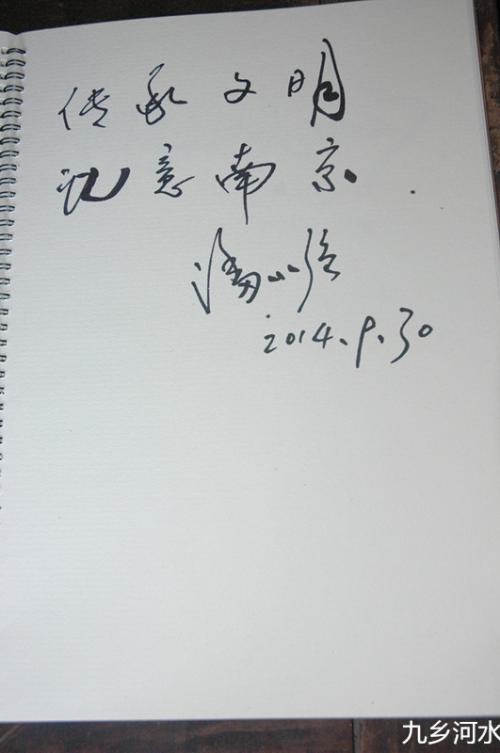 传承文明
记意南京
汤小
2014.9.30
九乡河水